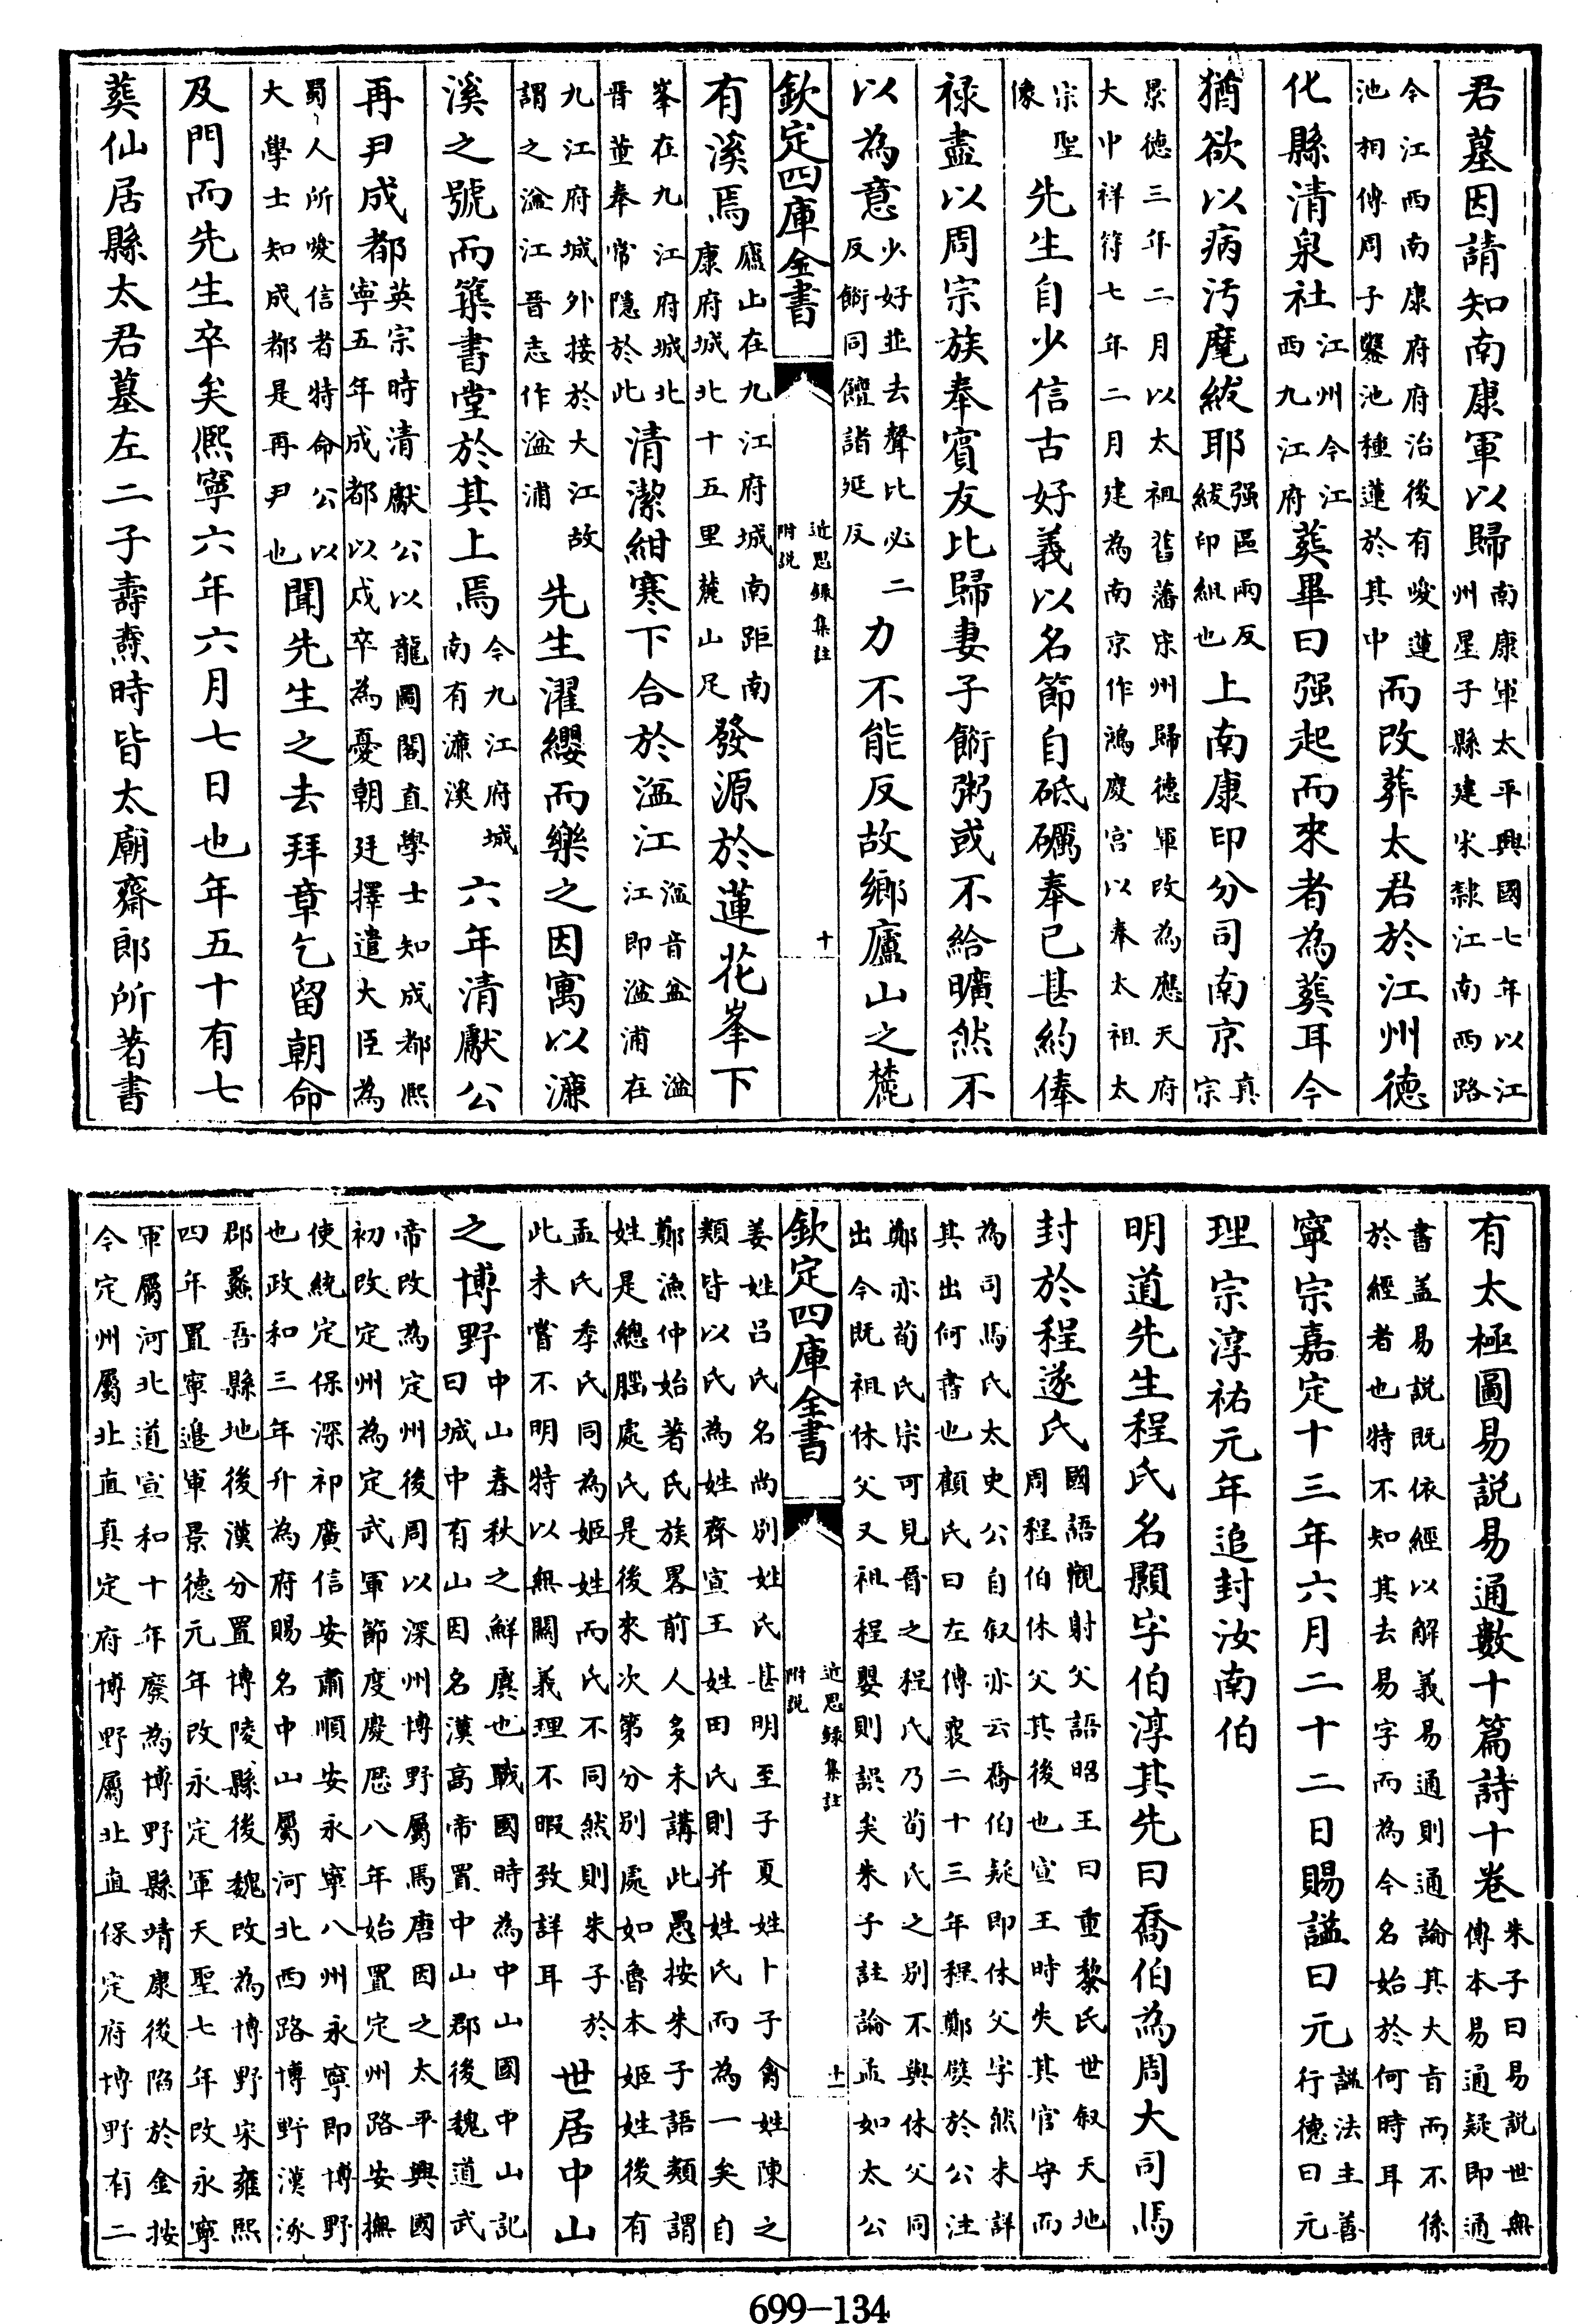 君墓因請知南康軍以歸南康軍太平興國七年以江州星子縣建宋隸江南西路
今江西南康府府治後有愛蓮池相傳周子鑿池種蓮於其中而改葬太君於江州德
化縣清泉社江州今江西九江府葬畢曰强起而來者為葬耳今
猶欲以病汚麾紱耶强區兩反紱印組也上南康印分司南京真宗
景德三年二月以太祖舊藩宋州歸德軍改為應天府大中祥符七年二月建為南京作鴻慶宮以奉太祖太
宗聖像先生自少信古好義以名節自砥礪奉已甚約俸
祿盡以周宗族奉賓友比歸妻子餰粥或不給曠然不
以為意少好並去聲比必二反餰同饘諸延反力不能反故鄉廬山之麓
欽定四庫全書
近思錄集註
附說
十
有溪焉廬山在九江府城南距南康府城北十五里麓山足發源於蓮花峯下
峯在九江府城北晉董奉常隱於此清潔紺寒下合於湓江湓音盆湓江即湓浦在
九江府城外接於大江故謂之湓江晉志作湓浦先生濯纓而樂之因寓以濂
溪之號而築書堂於其上焉今九江府城南有濂溪六年清獻公
再尹成都英宗時清獻公以龍圖閣直學士知成都熙寧五年成都以戍卒為憂朝廷擇遣大臣為
蜀人所愛信者特命公以大學士知成都是再尹也聞先生之去拜章乞留朝命
及門而先生卒矣熙寧六年六月七日也年五十有七
葬仙居縣太君墓左二子壽燾時皆太廟齋郎所著書
有太極圖易說易通數十篇詩十卷朱子曰易說世無傳本易通疑即通
書盖易說既依經以解義易通則通論其大旨而不係於經者也特不知其去易字而為今名始於何時耳
寧宗嘉定十三年六月二十二日賜諡曰元諡法主善行德曰元
理宗淳祐元年追封汝南伯
明道先生程氏名顥字伯淳其先曰喬伯為周大司馬
封於程遂氏國語觀射父語昭王曰重黎氏世叙天地周程伯休父其後也宣王時失其官守而
為司馬氏太史公自叙亦云喬伯疑即休父字然未詳其出何書也顧氏曰左傳襄二十三年程鄭嬖於公注
鄭亦荀氏宗可見晉之程氏乃荀氏之别不與休父同出今既祖休父又祖程嬰則誤矣朱子註論孟如太公
欽定四庫全書
近思錄集註
附說
十一
姜姓呂氏名尚别姓氏甚明至子夏姓卜子禽姓陳之類皆以氏為姓齊宣王姓田氏則并姓氏而為一矣自
鄭漁仲始著氏族畧前人多未講此愚按朱子語類謂姓是總腦處氏是後來次第分别處如魯本姬姓後有
孟氏季氏同為姬姓而氏不同然則朱子於此未嘗不明特以無關義理不暇致詳耳世居中山
之博野中山春秋之鮮虞也戰國時為中山國中山記曰城中有山因名漢高帝置中山郡後魏道武
帝改為定州後周以深州博野屬焉唐因之太平興國初改定州為定武軍節度慶厯八年始置定州路安撫
使統定保深祁廣信安肅順安永寧八州永寧即博野也政和三年升為府賜名中山屬河北西路博野漢涿
郡蠡吾縣地後漢分置博陵縣後魏改為博野宋雍熙四年置寧邊軍景德元年改永定軍天聖七年改永寧
軍屬河北道宣和十年廢為博野縣靖康後陷於金按今定州屬北直真定府博野屬北直保定府博野有二
699-134